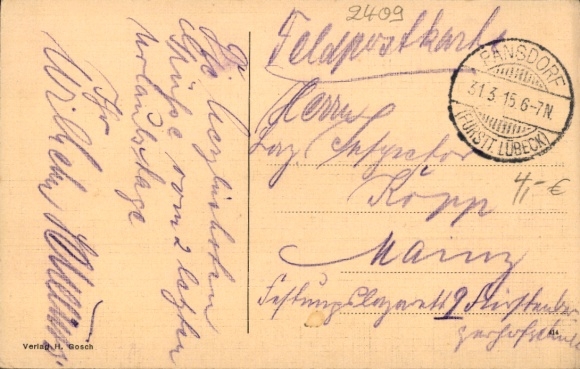 2409
Feldpostkarte
PANSDORF
31.3.15.6-7N.
(FÜRSTT. LÜBECK)
Herrn
Laz. Inspektor
Köpp
Mainz
Festungslazarett 9 Fürstenber
gerhofschule
4,- €
Die herzlichsten
Grüße vom 2 letzten
Urlaubstage
Ihr
Wilhelm
Verlag H. Gosch
414